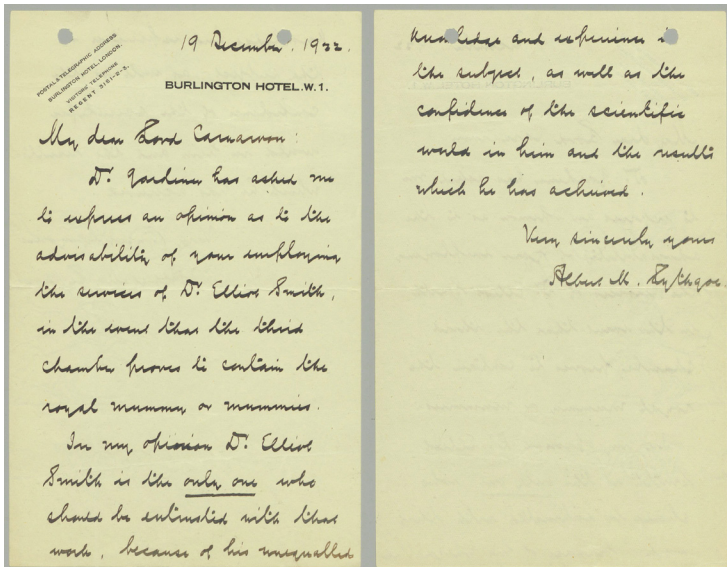 19 December. 1922.
POSTAL & TELEGRAPHIC ADDRESS
BURLINGTON HOTEL, LONDON.
VISITORS' TELEPHONE
REGENT 3121-2-3.
BURLINGTON HOTEL. W.1.
My dear Lord Carnarvon:
Dr. Gardiner has asked me
to express an opinion as to the
advisability of your employing
the services of Dr. Elliot Smith,
in the event that the third
chamber proves to contain the
royal mummy or mummies.
In my opinion Dr. Elliot
Smith is the only one who
should be entrusted with that
work, because of his unequalled
knowledge and experience in
the subject, as well as the
confidence of the scientific
world in him and the results
which he has achieved.
Very sincerely yours
Albert M. Lythgoe